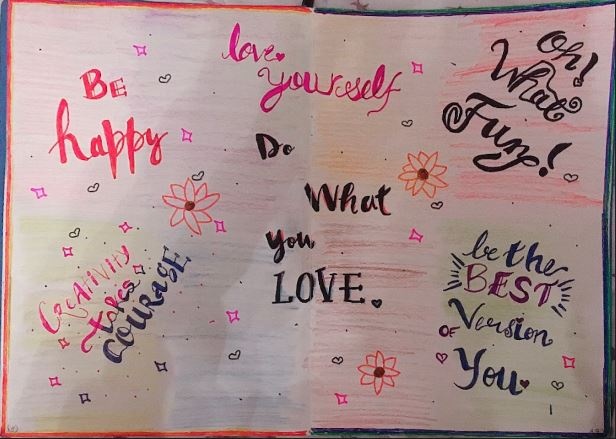 Be
happy
love
yourself
Oh!
What
Fun!
Do
What
you
LOVE.
CREATIVITY
takes
COURAGE
be the
BEST
Version
OF
You